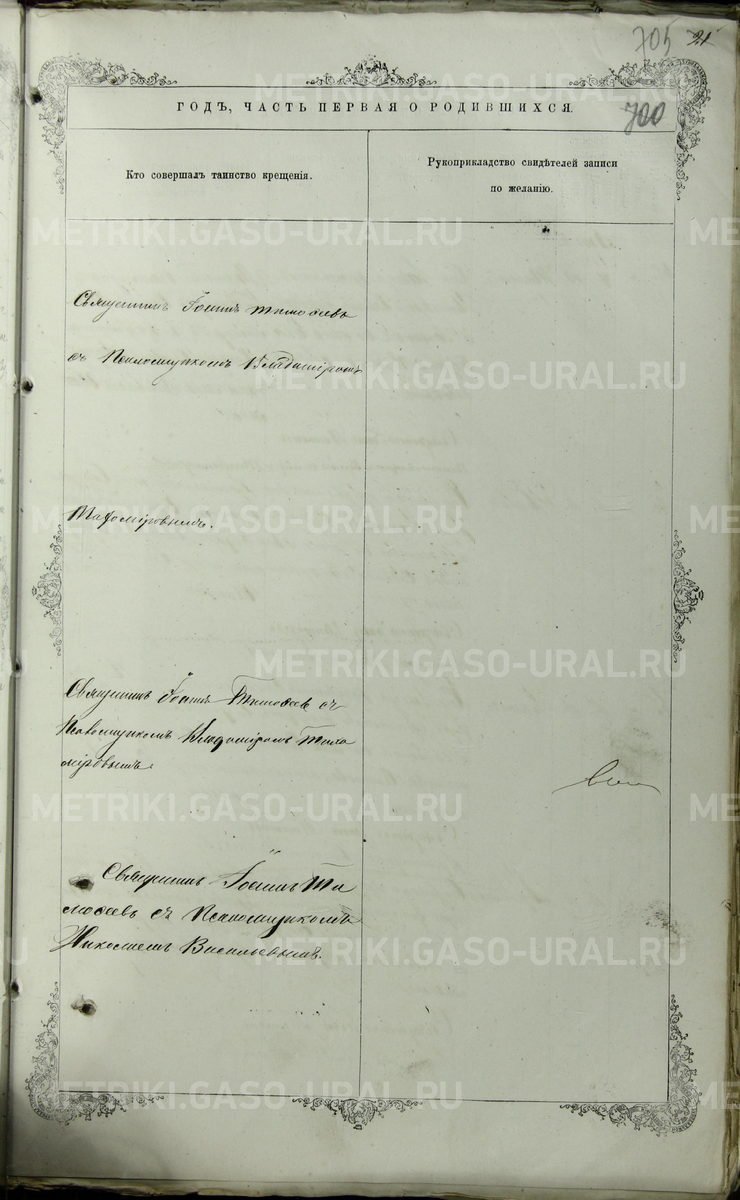 705 21
ГОДЪ, ЧАСТЬ ПЕРВАЯ О РОДИВШИХСЯ.
700
Кто совершалъ таинство крещенія.
Рукоприкладство свидѣтелей записи
по желанію.
Священникъ Тимоѳеевъ
съ Псаломщикомъ Владиміромъ
Священникъ Тимоѳеев съ
Псаломщикомъ Владиміромъ Тихо
міровымъ.
Священникъ Ти
моѳеевъ съ Псаломщикомъ
Николаемъ Васильевымъ.
METRIKI.GASO-URAL.RU